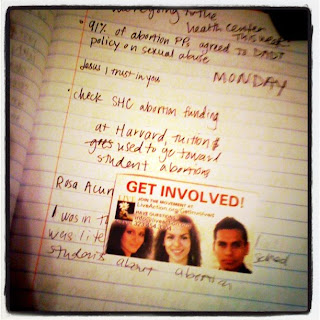 going to the
health center
This week
• 91% of abortion PPs agreed to
policy on sexual abuse
Jesus I trust in you
MONDAY
• check SHC abortion funding
at Harvard, tuition $
goes used to go toward
student abortions
Rosa Acun
GET INVOLVED!
JOIN THE MOVEMENT AT
LiveAction.org/getinvolved
HAVE QUESTIONS?
I was in T
was lite
students about abortion